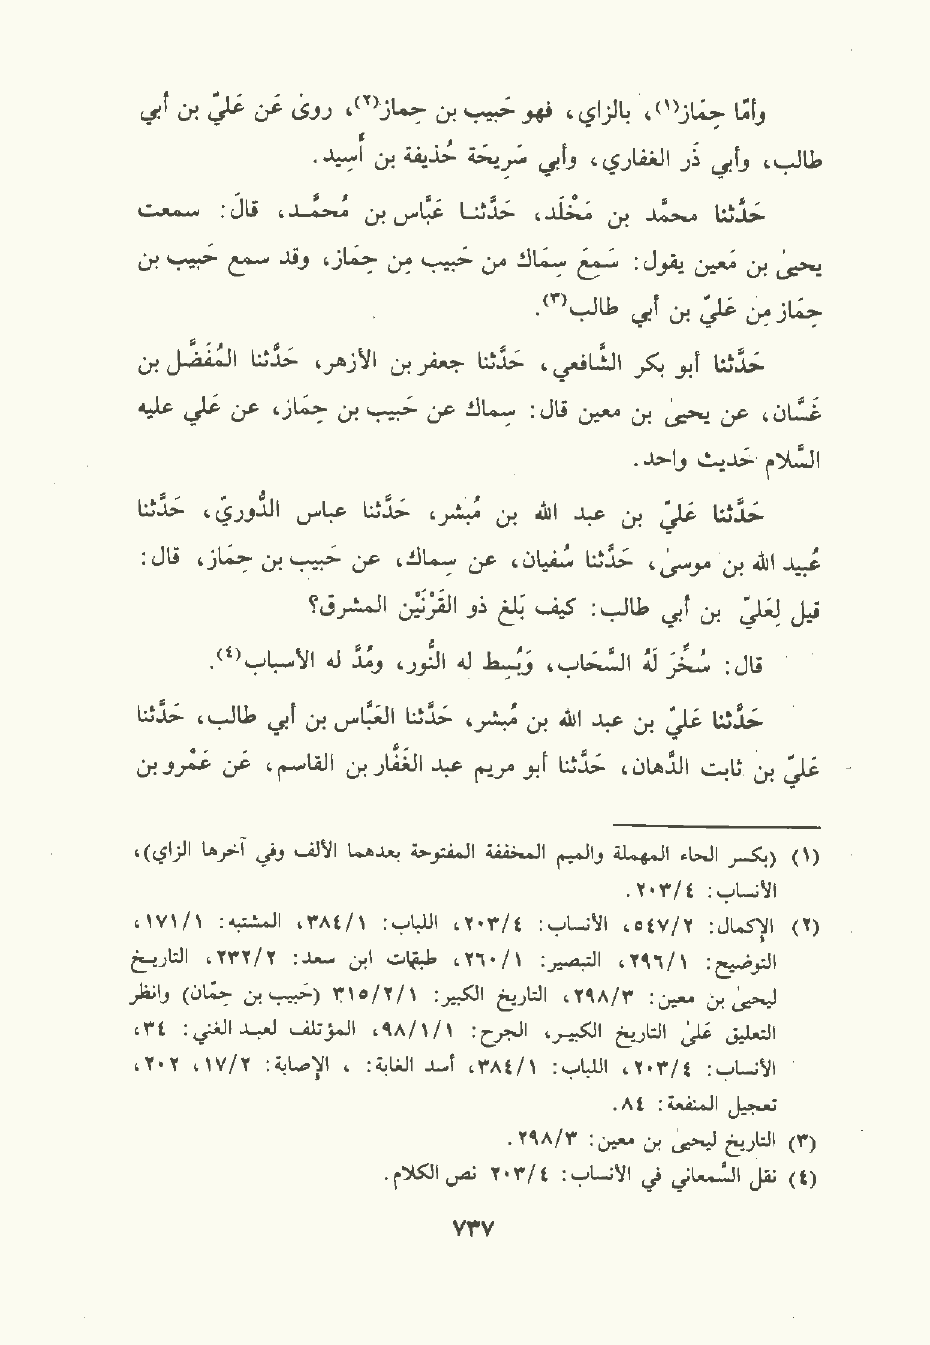 وأمّا حِمَاز(١)، بالزاي، فهو حَبيب بن حِماز(٢)، روىٰ عَن عَليّ بن أبي
طالب، وأبي ذَر الغفاري، وأبي سَريحَة حُذيفة بن أَسِيد.
حَدّثنا محمّد بن مَخْلَد، حَدّثنا عَبَّاس بن مُحمّد، قالَ: سمعت
يحيىٰ بن مَعين يقول: سَمِعَ سِمَاك من حَبيب مِن حِمَاز، وقد سمع حَبيب بن
حِمَاز مِن عَليّ بن أبي طالب(٣).
حَدّثنا أبو بكر الشّافعي، حَدّثنا جعفر بن الأزهر، حَدّثنا المُفَضّل بن
غَسّان، عن يحيىٰ بن معين قال: سِماك عن حَبيب بن حِمَاز، عن عَلي عليه
السّلام حَديث واحد.
حَدّثنا عَليّ بن عبد الله بن مُبشر، حَدّثنا عباس الدّوريّ، حَدّثنا
عُبيد الله بن موسىٰ، حَدّثنا سُفيان، عن سِماك، عن حَبيب بن حِمَاز، قال:
قيل لِعَليّ بن أبي طالب: كيف بَلغ ذو القَرْنَيْن المشرق؟
قال: سُخّرَ لَهُ السَّحَاب، وَبُسِط له النّور، ومُدّ له الأسباب(٤).
حَدّثنا عَليّ بن عبد الله بن مُبشر، حَدّثنا العَبَّاس بن أبي طالب، حَدّثنا
عَليّ بن ثابت الدّهان، حَدّثنا أبو مريم عبد الغَفّار بن القاسم، عَن عَمْرو بن
(١) (بكسر الحاء المهملة والميم المخففة المفتوحة بعدهما الألف وفي آخرها الزاي)،
الأنساب: ٢٠٣/٤.
(٢) الإكمال: ٥٤٧/٢، الأنساب: ٢٠٣/٤، اللباب: ٣٨٤/١، المشتبه: ١٧١/١،
التوضيح: ٢٩٦/١، التبصير: ٢٦٠/١، طبقات ابن سعد: ٢٣٢/٢، التاريخ
ليحيىٰ بن معين: ٢٩٨/٣، التاريخ الكبير: ٣١٥/٢/١ (حَبيب بن حِمّان) وانظر
التعليق علىٰ التاريخ الكبير، الجرح: ٩٨/١/١، المؤتلف لعبد الغني: ٣٤،
الأنساب: ٢٠٣/٤، اللباب: ٣٨٤/١، أسد الغابة: ، الإصابة: ١٧/٢، ٢٠٢،
تعجيل المنفعة: ٨٤.
(٣) التاريخ ليحيىٰ بن معين: ٢٩٨/٣.
(٤) نقل السّمعاني في الأنساب: ٢٠٣/٤ نص الكلام.
٧٣٧